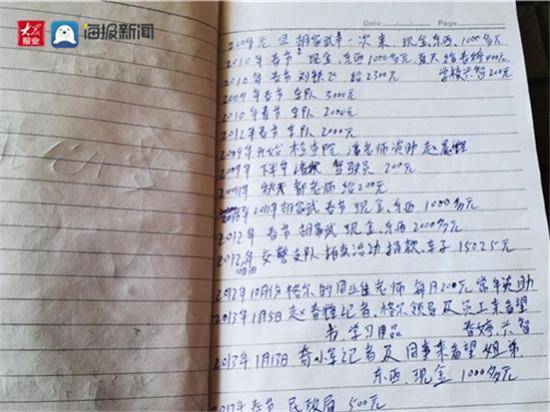 大众报业 海报新闻
Date / / Page
2009年元旦 胡容武第一次来 现金、东西 1000多元
2010年春节 现金、东西1000多元,夏天给春婷400元
2010年春节 刘铁飞 给2300元 学校六智200元
2009年春节 车队 3000元
2010年春节 车队 2000元
2012年春节 车队 2000元
2009年开始 检查院 潘老师资助赵
2009年下半年 驾驶员 200元
2009年 秋天 郭老师给200元
2011年胡容武 春节 现金、东西 1000多元
2012年 春节 胡容武 现金、东西 2000多元
2012年 交警支队 拍卖活动 捐款、车子 15025元
2012年10月份格尔的周业佳老师 每月200元 常年资助
2013年1月5日赵春辉记者、格尔领导及员工来看望
书、学习用品 春婷、六智
2013年1月13日 乔小军记者及同事来看望姐弟
东西、现金 1000多元
春节 民政局 500元